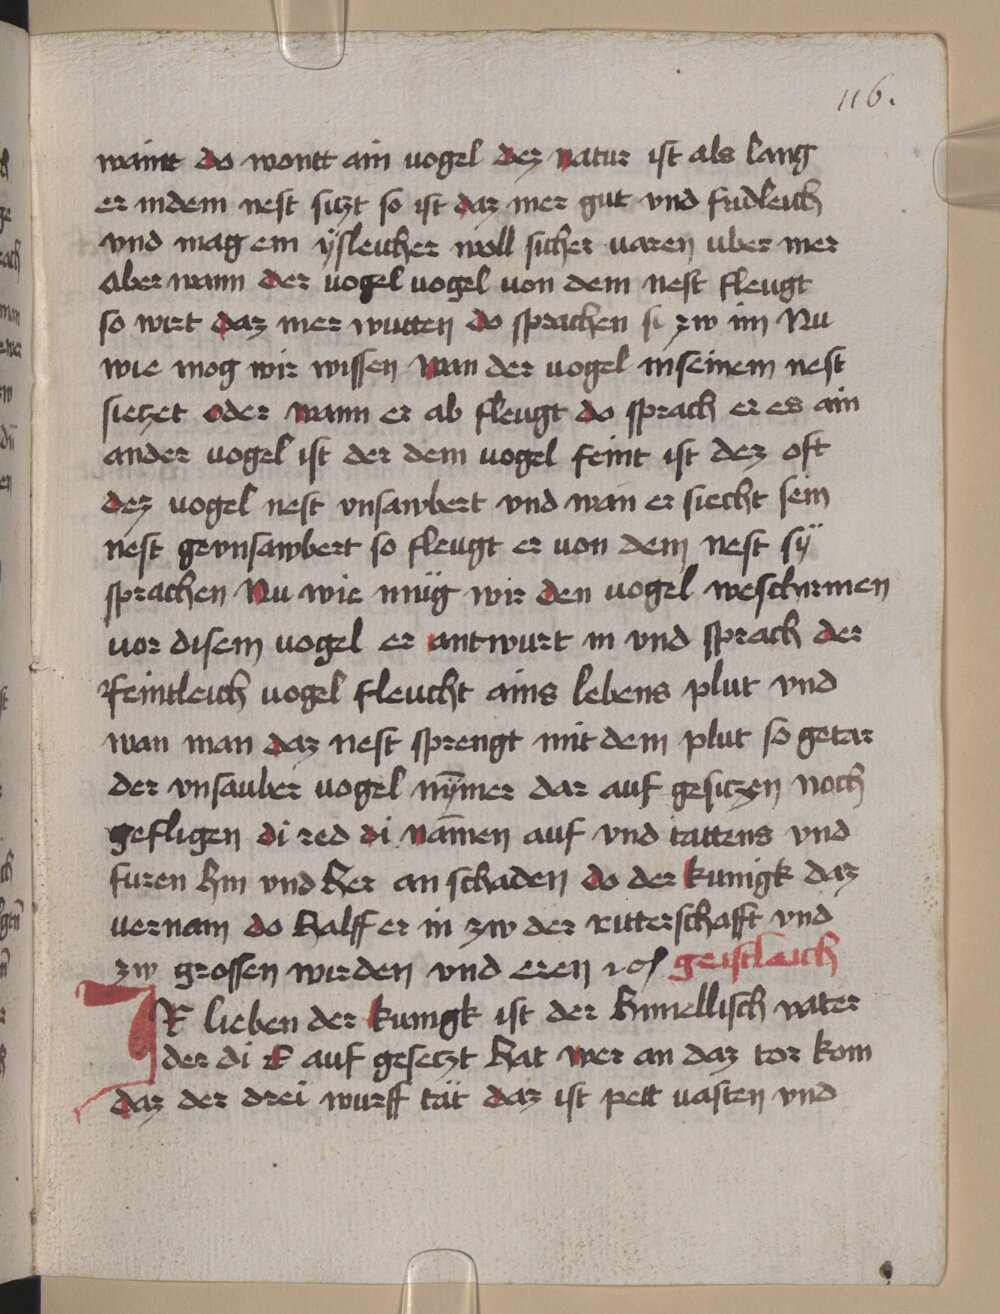 116.
waint do wontt ain vogel dez natur ist als lang
er indem nest sizt so ist daz mer gut vnd fridleich
vnd mag ein ÿsleicher woll sicher varen vber mer
aber wann der vogel vogel von dem nest fleugt
so wirt daz mer wutten do sprachen si zw im Nu
wie mog wir wissen wan der vogel inseinem nest
siczet oder wann er ab fleugt do sprach er es ain
ander vogel ist der dem vogel feint ist dez oft
dez vogel nest vnsawbert vnd wan er siecht sein
nest gevnsawbert so fleugt er von dem nest sÿ
sprachen Nu wie müg wir den vogel weschirmen
vor disem vogel er antwurt in vnd sprach der
feintleich vogel fleucht ains lebens plut vnd
wan man daz nest sprengt mit dem plut so getar
der vnsauber vogel nÿmer dar auf gesiczen noch
gefligen di red di namen auf vnd tattens vnd
furen hin vnd her an schaden do der kunigk daz
vernam do halff er in zw der ritterschafft vnd
zw grossen wirden vnd eren ⁊c geistleich
Ir lieben der kunigk ist der himellisch vater
der di E auf gesetzt hat wer an daz tor kom
daz der drei wurff tät daz ist pett vasten vnd